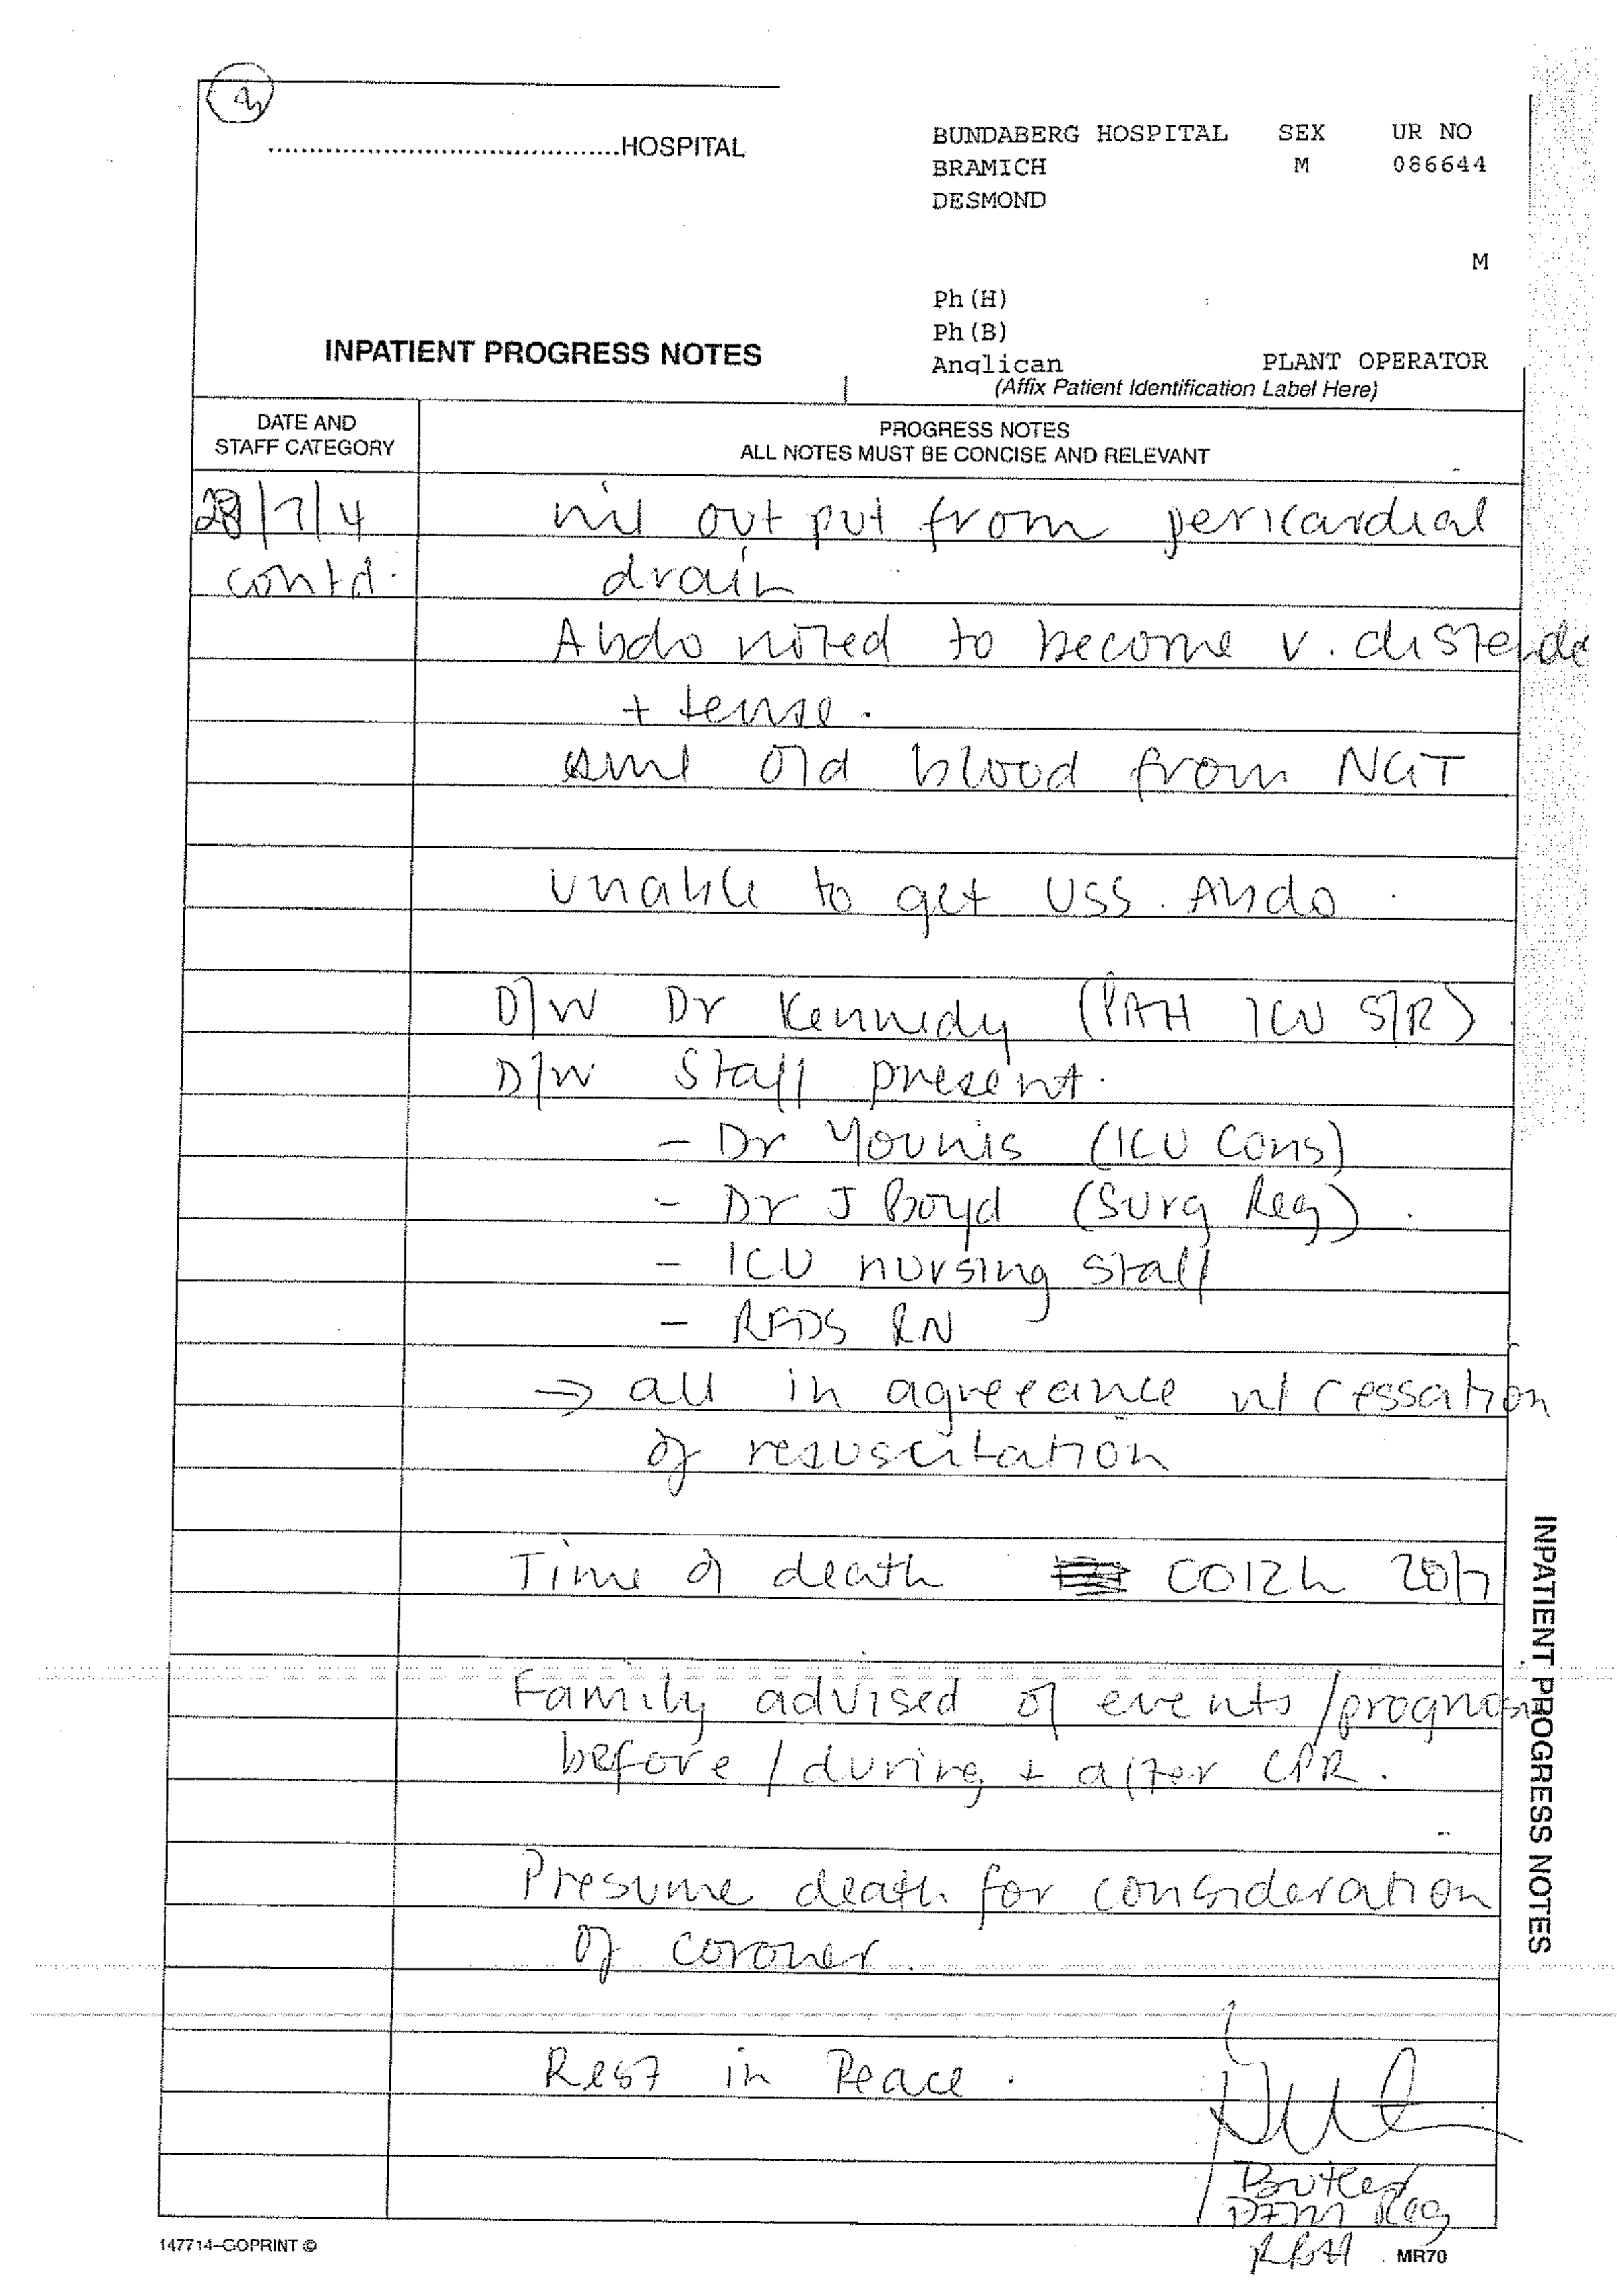 ........................................HOSPITAL
BUNDABERG HOSPITAL SEX UR NO
BRAMICH M 086644
DESMOND
M
Ph (H)
Ph (B)
INPATIENT PROGRESS NOTES
Anglican PLANT OPERATOR
(Affix Patient Identification Label Here)
DATE AND STAFF CATEGORY
PROGRESS NOTES
ALL NOTES MUST BE CONCISE AND RELEVANT
28/7/4 nil out put from pericardial
contd. drain
Abdo noted to become v. distende
+ tense.
old blood from NGT
Unable to get USS. Abdo
D/W Dr Kennedy (PAH ICU S/R)
D/W Staff present.
- Dr Younis (ICU Cons)
- Dr J Boyd (Surg Reg)
- ICU nursing staff
- RFDS RN
→ all in agreeance w/ cessation
of resuscitation
Time of death 0012h 28/7
Family advised of events /prognosis
before / during + after CPR.
Presume death for consideration
of coroner.
Rest in Peace.
Butler
Reg
INPATIENT PROGRESS NOTES
147714-GOPRINT ©
MR70